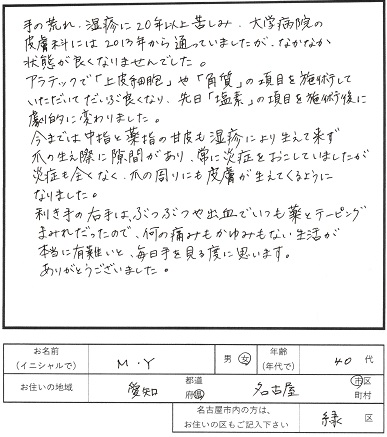 手の荒れ、湿疹に20年以上苦しみ、大学病院の
皮膚科には2013年から通っていましたが、なかなか
状態が良くなりませんでした。
アラテックで「上皮細胞」や「角質」の項目を施術して
いただいてだいぶ良くなり、先日「塩素」の項目を施術後に
劇的に変わりました。
今までは中指と薬指の甘皮も湿疹により生えて来ず
爪の生え際に隙間があり、常に炎症をおこしていましたが
炎症も全くなく、爪の周りにも皮膚が生えてくるように
なりました。
利き手の右手は、ぶつぶつや出血でいつも薬とテーピング
まみれだったので、何の痛みもかゆみもない生活が
本当に有難いと、毎日手を見る度に思います。
ありがとうございました。
お名前
(イニシャルで)
M・Y
男 女
年齢
(年代で)
40 代
お住いの地域
愛知
都道
府県
名古屋
市区
町村
名古屋市内の方は、
お住いの区もご記入下さい
緑 区